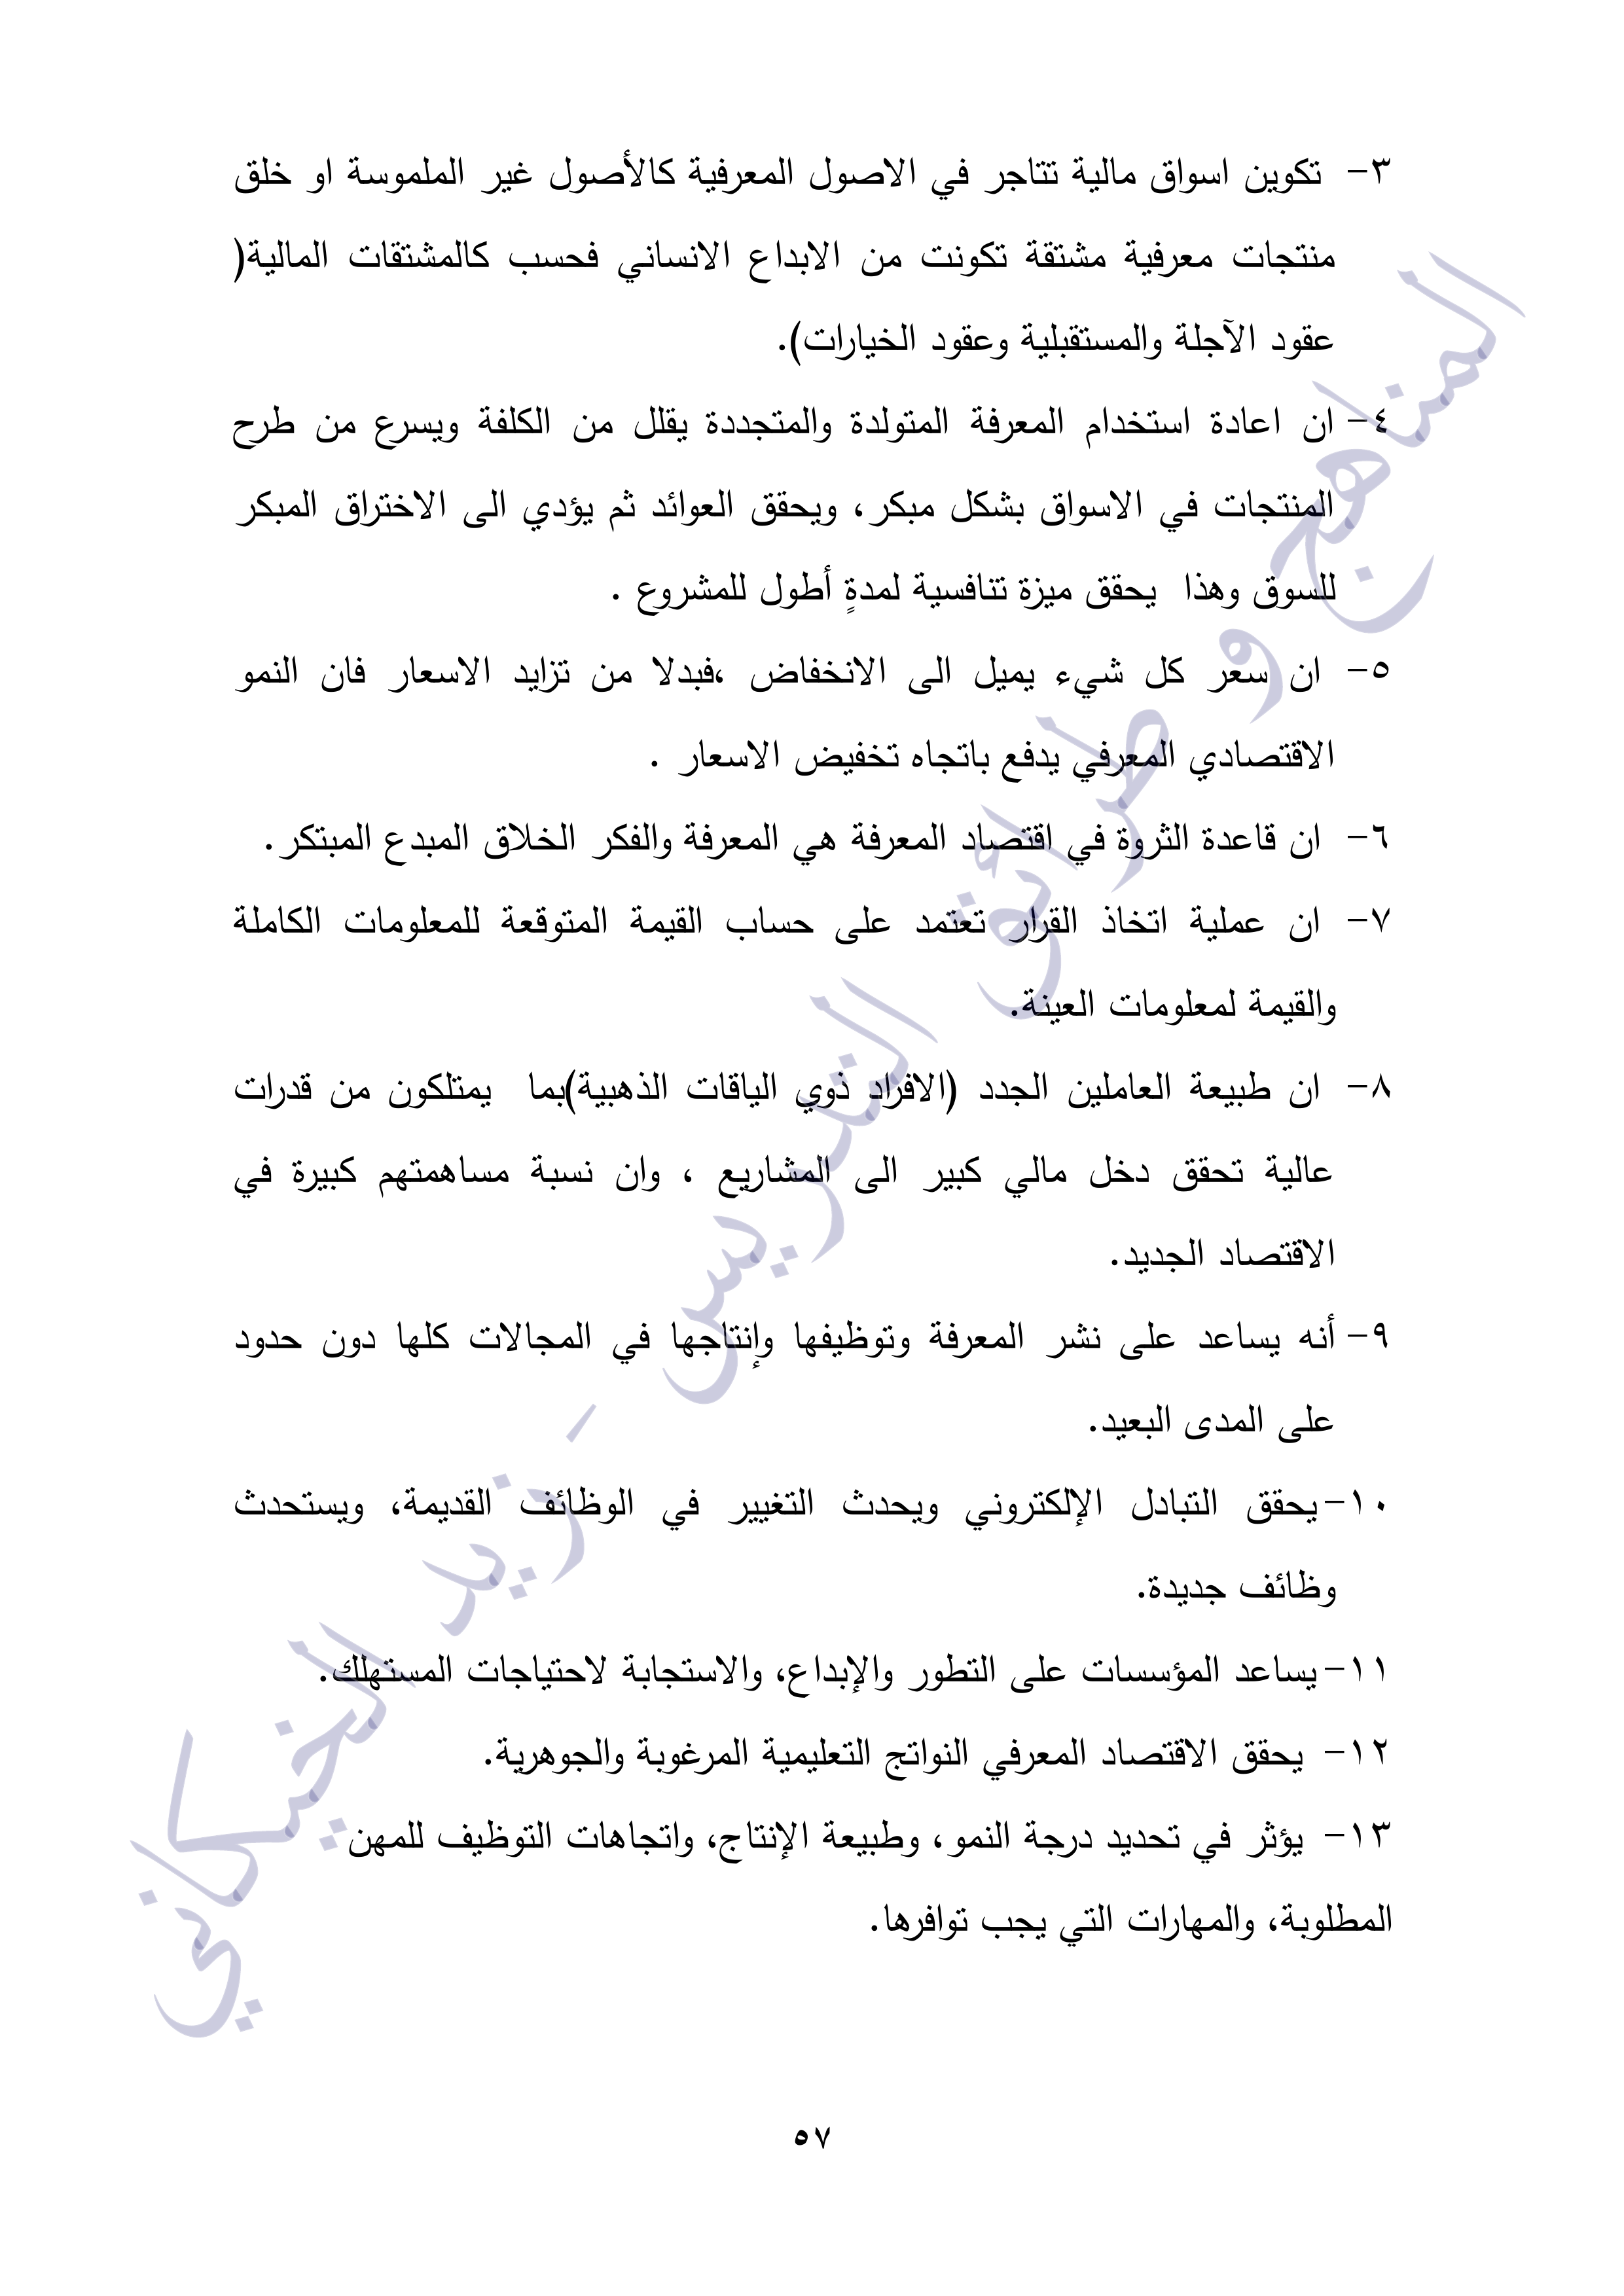 ٣- تكوين اسواق مالية تتاجر في الاصول المعرفية كالأصول غير الملموسة او خلق
منتجات معرفية مشتقة تكونت من الابداع الانساني فحسب كالمشتقات المالية(
عقود الآجلة والمستقبلية وعقود الخيارات).
٤- ان اعادة استخدام المعرفة المتولدة والمتجددة يقلل من الكلفة ويسرع من طرح
المنتجات في الاسواق بشكل مبكر، ويحقق العوائد ثم يؤدي الى الاختراق المبكر
للسوق وهذا يحقق ميزة تنافسية لمدةٍ أطول للمشروع .
٥- ان سعر كل شيء يميل الى الانخفاض ،فبدلا من تزايد الاسعار فان النمو
الاقتصادي المعرفي يدفع باتجاه تخفيض الاسعار .
٦- ان قاعدة الثروة في اقتصاد المعرفة هي المعرفة والفكر الخلاق المبدع المبتكر.
٧- ان عملية اتخاذ القرار تعتمد على حساب القيمة المتوقعة للمعلومات الكاملة
والقيمة لمعلومات العينة.
٨- ان طبيعة العاملين الجدد (الافراد ذوي الياقات الذهبية)بما يمتلكون من قدرات
عالية تحقق دخل مالي كبير الى المشاريع ، وان نسبة مساهمتهم كبيرة في
الاقتصاد الجديد.
٩- أنه يساعد على نشر المعرفة وتوظيفها وإنتاجها في المجالات كلها دون حدود
على المدى البعيد.
١٠- يحقق التبادل الإلكتروني ويحدث التغيير في الوظائف القديمة، ويستحدث
وظائف جديدة.
١١- يساعد المؤسسات على التطور والإبداع، والاستجابة لاحتياجات المستهلك.
١٢- يحقق الاقتصاد المعرفي النواتج التعليمية المرغوبة والجوهرية.
١٣- يؤثر في تحديد درجة النمو، وطبيعة الإنتاج، واتجاهات التوظيف للمهن
المطلوبة، والمهارات التي يجب توافرها.
المناهج و طرائق التدريس - زيد الخيكاني
٥٧